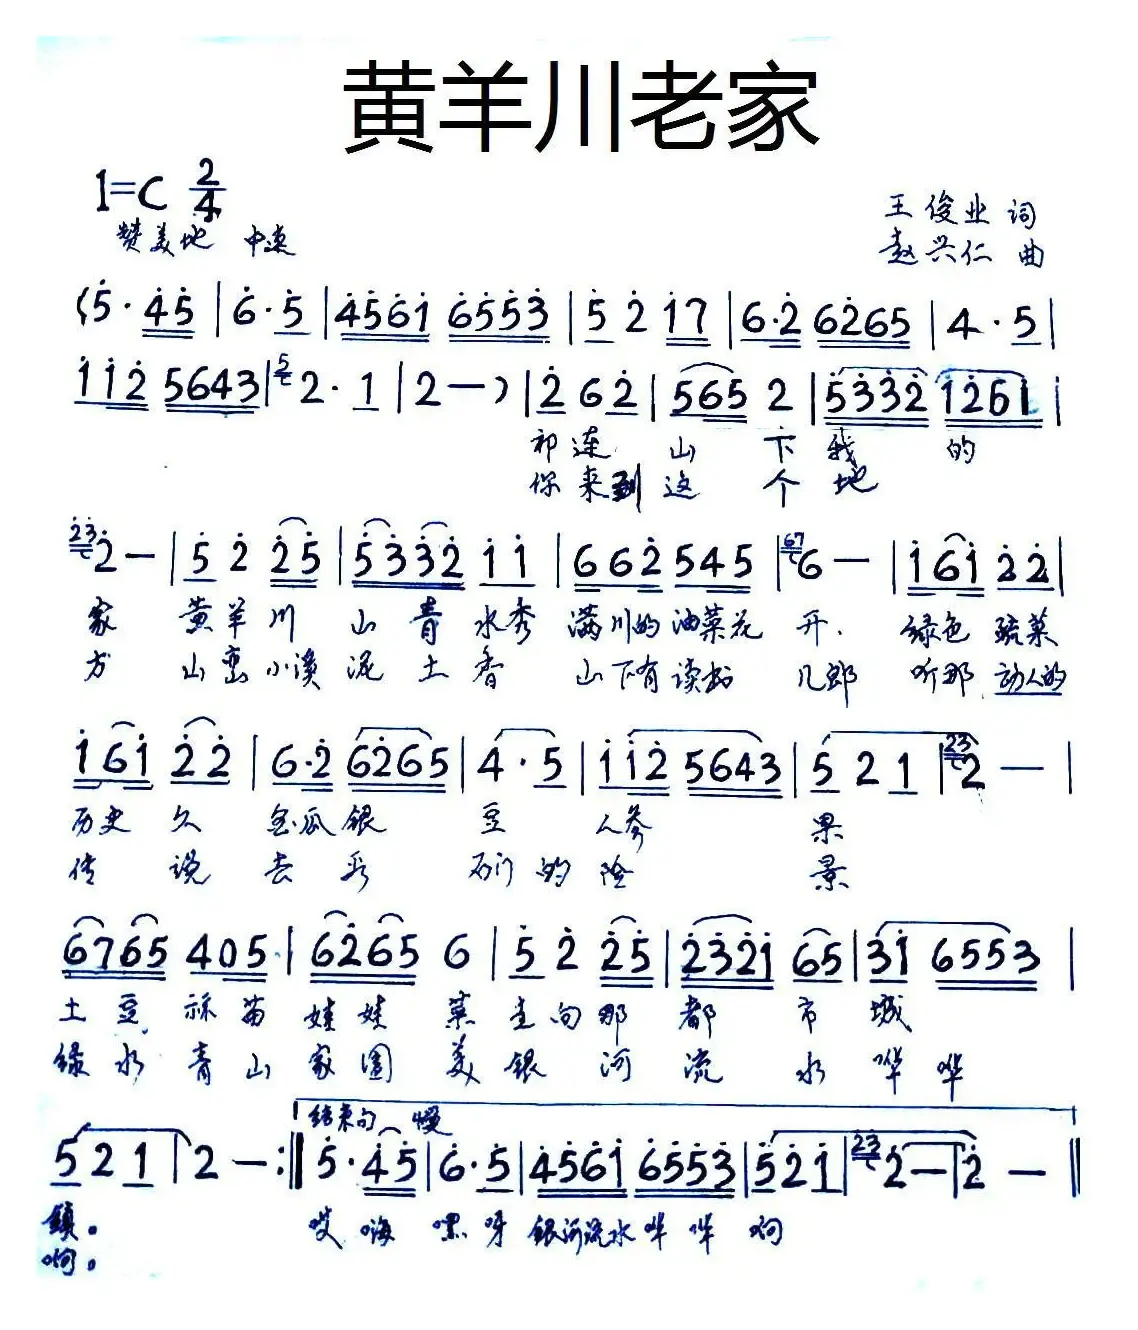 黄羊川老家
1=C 2/4
王俊业 词
赞美地 中速
赵兴仁 曲
(5·45|6·5|4561 6553|5 2 17|6·2 6265|4·5|
112 5643|5 2·1|2—)|2 6 2|565 2|5332 1261|
祁连山下我的
你来到这个地
23 2—|5 2 25|5332 11|662 545|67 6—|161 22|
家 黄羊川 山青水秀 满川的油菜花开. 绿色疏菜
方 山峦小溪泥土香 山下有读书儿郎 听那动人的
161 22|6·2 6265|4·5|112 5643|5 2 1|23 2—|
历史久 金瓜银豆人参果
传说去看 石门的险景
6765 405|6265 6|5 2 25|2321 65|31 6553|
土豆 苗娃娃菜走向那都市城
绿水青山家园美银河流水哗哗
5 2 1|2—:‖5·45|6·5|4561 6553|5 2 1|23 2—|2—‖
结束句 慢
镇。 哎嗨嘿呀银河流水哗哗啊
啊。